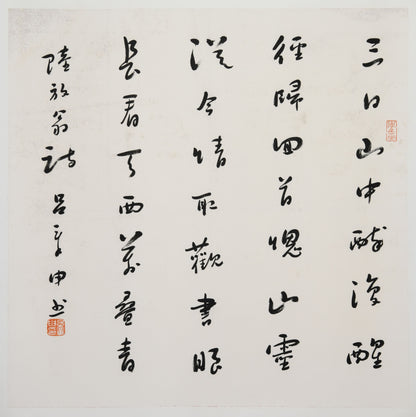 三日山中醉復醒
徑歸回首愧山靈
從今惜取觀書眼
長看天西萬疊青
陸放翁詩 呂章申書